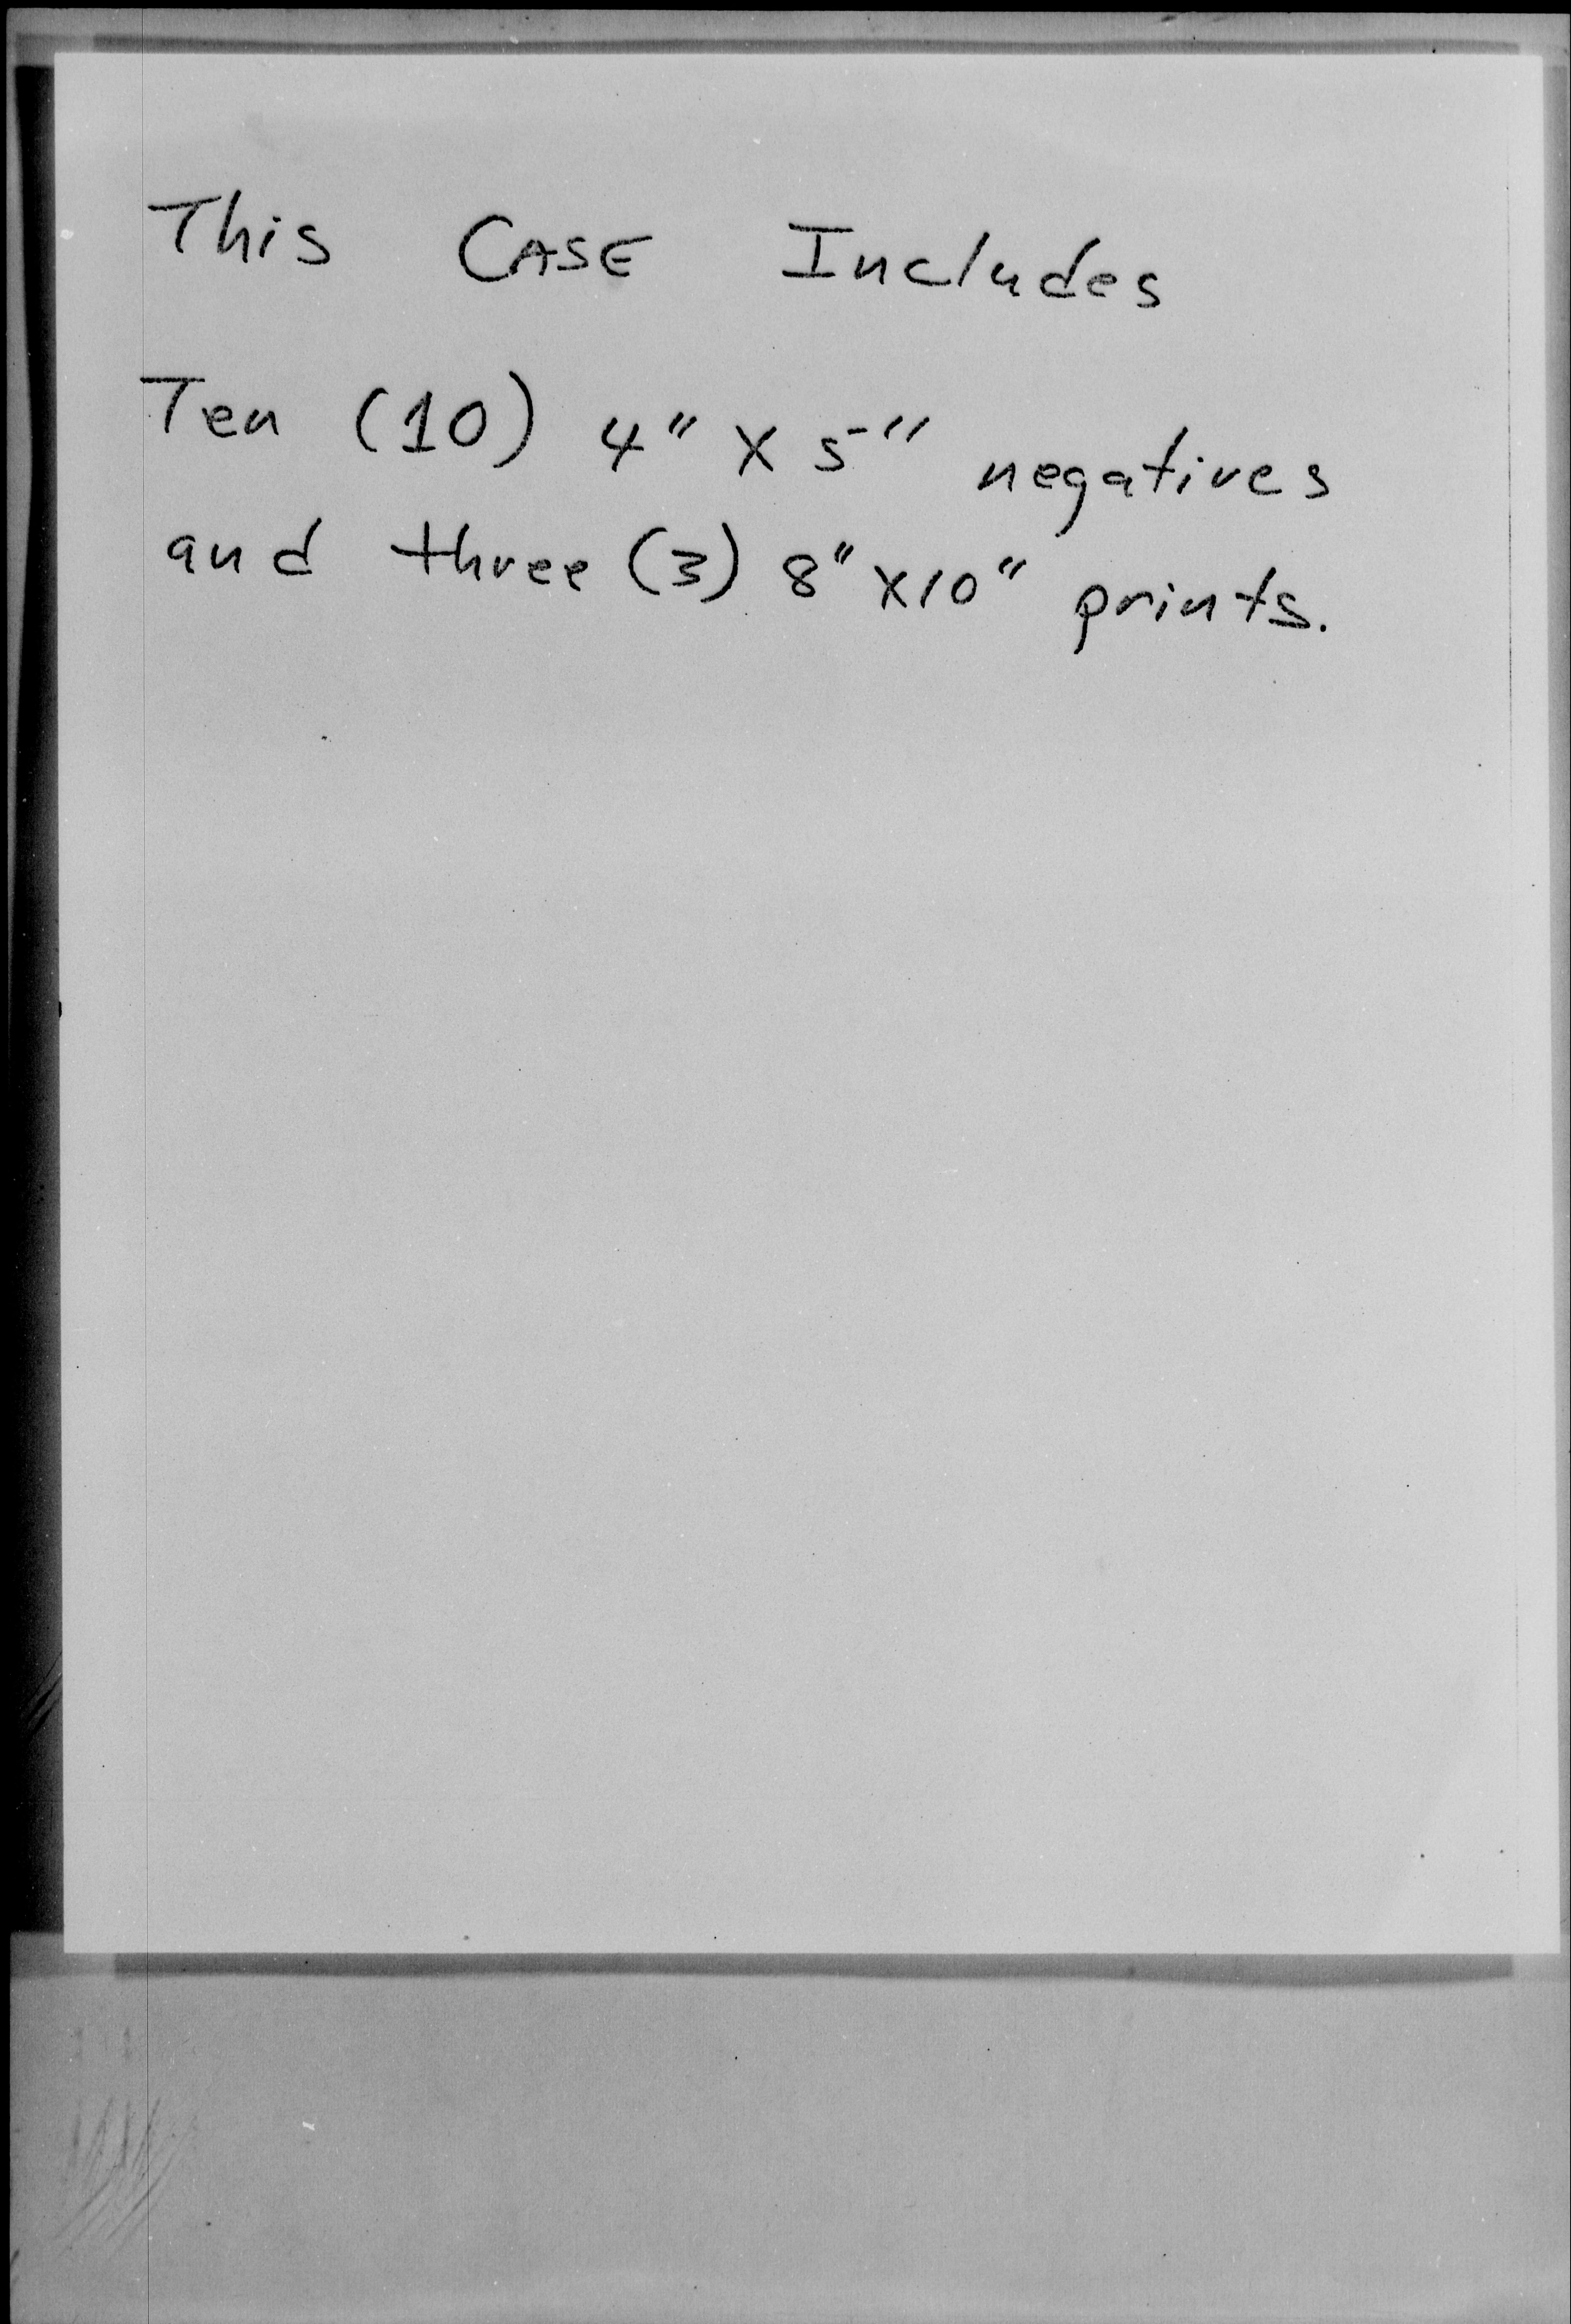 This CASE Includes
Ten (10) 4" X 5" negatives
and three (3) 8" X10" prints.